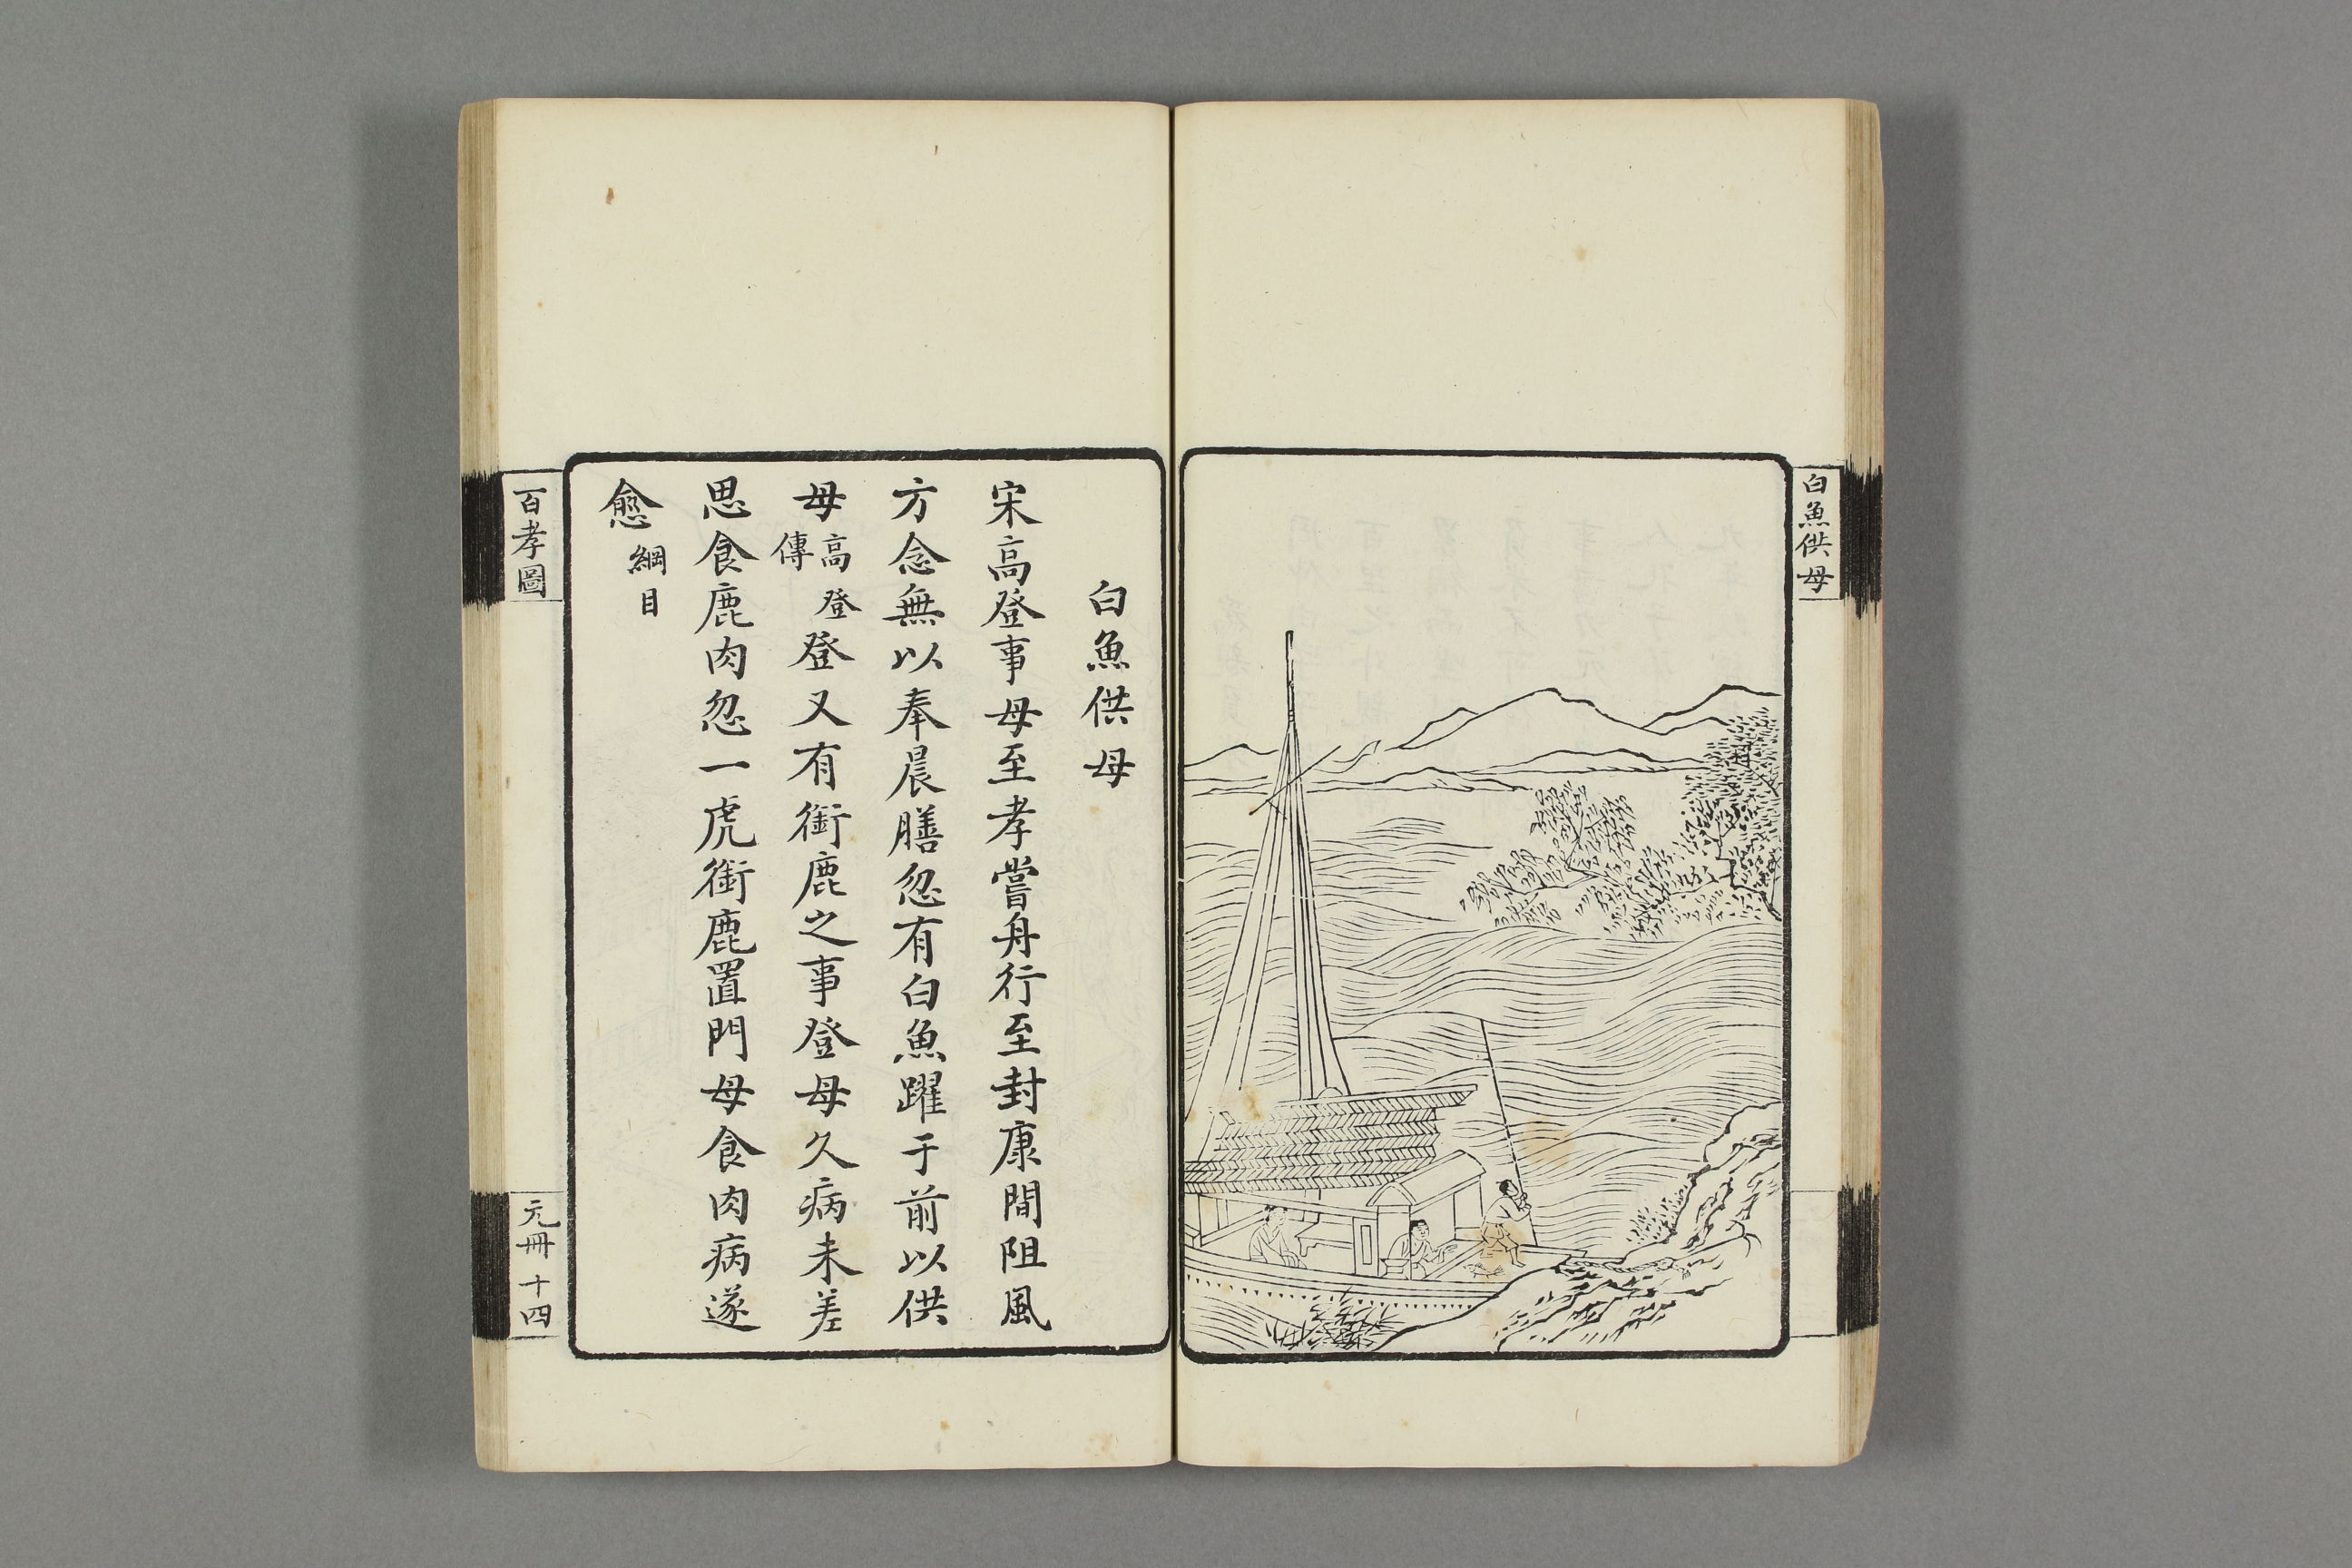 白魚供母
白魚供母
宋高登事母至孝嘗舟行至封康間阻風
方念無以奉晨膳忽有白魚躍于前以供
母高登傳登又有銜鹿之事登母久病未差
思食鹿肉忽一虎銜鹿置門母食肉病遂
愈綱目
百孝圖
元冊 十四